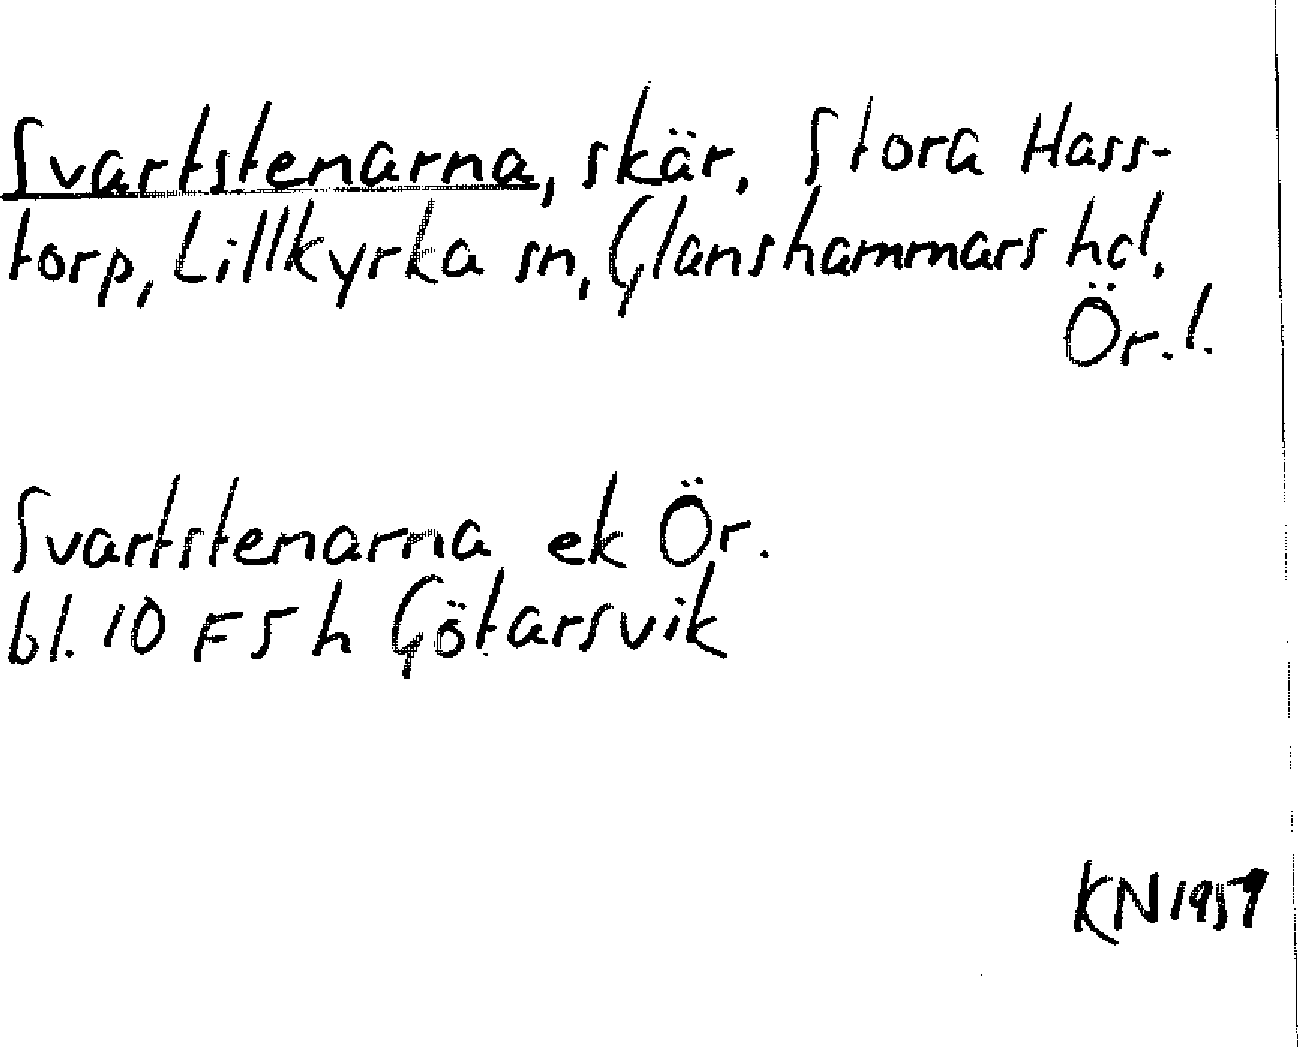 Svartstenarna, skär, Stora Hass-
torp, Lillkyrka sn, Glanshammars hd.
Ör. l.
Svartstenarna ek Ör.
bl. 10 F 5 h Götarsvik
KN 1959